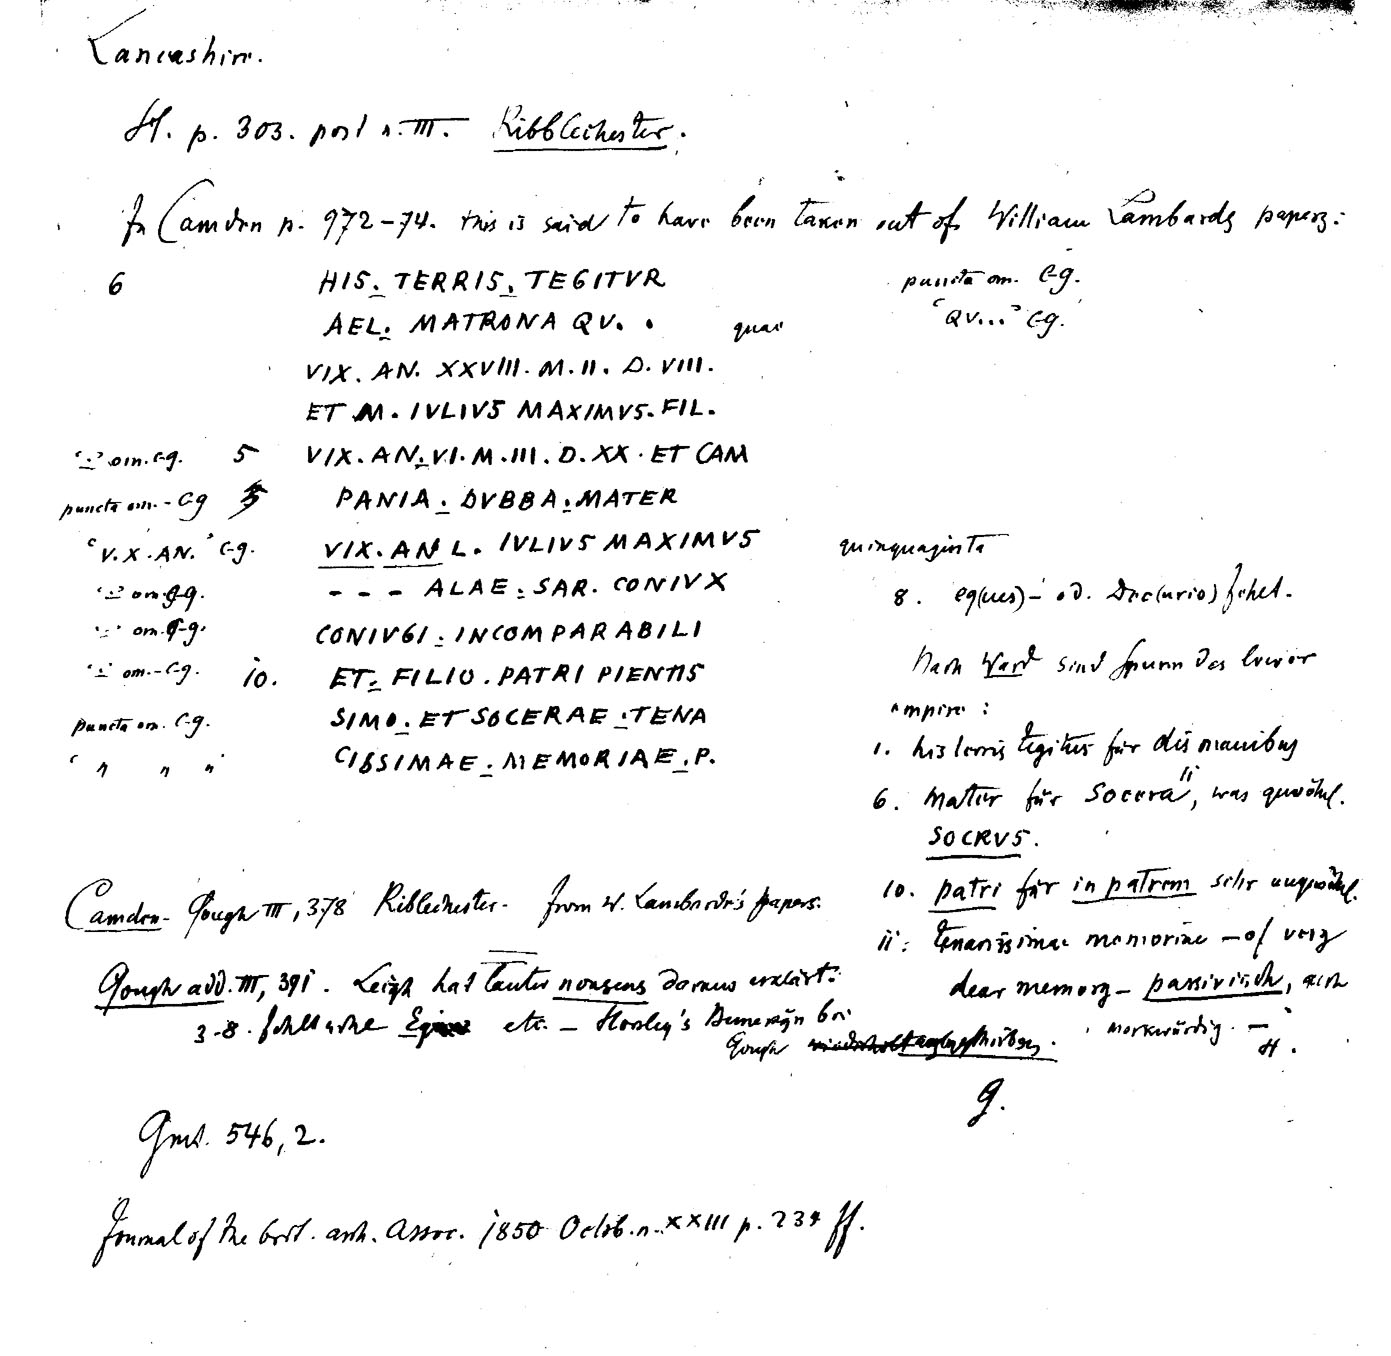 Lancashire.
H. p. 303. post n. III. Ribblechester.
In Camden p. 972-74. this is said to have been taken out of William Lambards papers:
6 HIS. TERRIS. TEGITVR puncta om. C-g.
AEL. MATRONA QV. . quae "QV..." C-g.
VIX. AN. XXVIII. M. II. D. VIII.
ET M. IVLIVS MAXIMVS. FIL.
"." om. C-g. 5 VIX. AN. VI. M. III. D. XX. ET CAM
puncta om. - C-g PANIA. DVBBA. MATER
"V. X. AN." C-g. VIX. AN L. IVLIVS MAXIMVS quinquaginta
"." om. C-g. - - - ALAE. SAR. CONIVX 8. eq(ues) - od. Dec(urio) fehlt.
"." om. C-g. CONIVGI. INCOMPARABILI
"." om. - C-g. 10. ET. FILIO. PATRI PIENTIS Nach Ward sind Spuren des lower
puncta om. C-g. SIMO. ET SOCERAE. TENA empire:
" " " " CISSIMAE. MEMORIAE. P. 1. his terris tegitur für dis manibus
6. mater für Socera 11, was gewöhnl.
SOCRVS.
10. patri für in patrem sehr ungewöhnl.
11. tenacissimae memoriae - of very
dear memory - passivisch, auch
merkwürdig. - H.
Camden-Gough III, 378 Riblechester. from W. Lambarde's papers.
Gough add. III, 391. Leigh hat lauter nonsens daraus erklärt:
3-8. fehlt etc. - Horsley's Bemerkgn bei
Gough
g.
Gmt. 546, 2.
Journal of the brit. arch. Assoc. 1850 Octob. n. XXIII p. 234 ff.